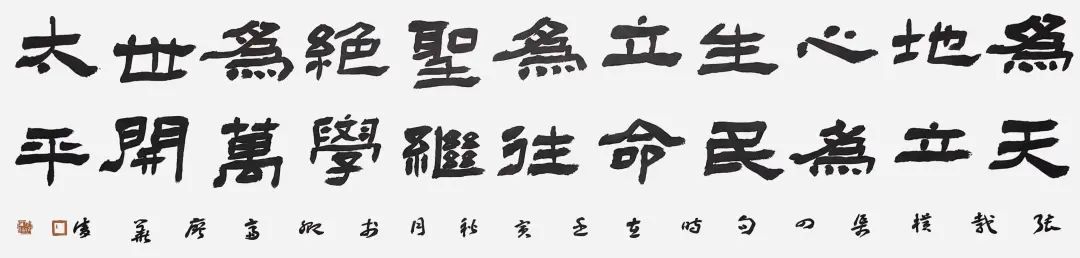 為天
地立
心為
生民
立命
為往
聖繼
絕學
為萬
世開
太平
張載橫渠四句時在壬寅秋月於